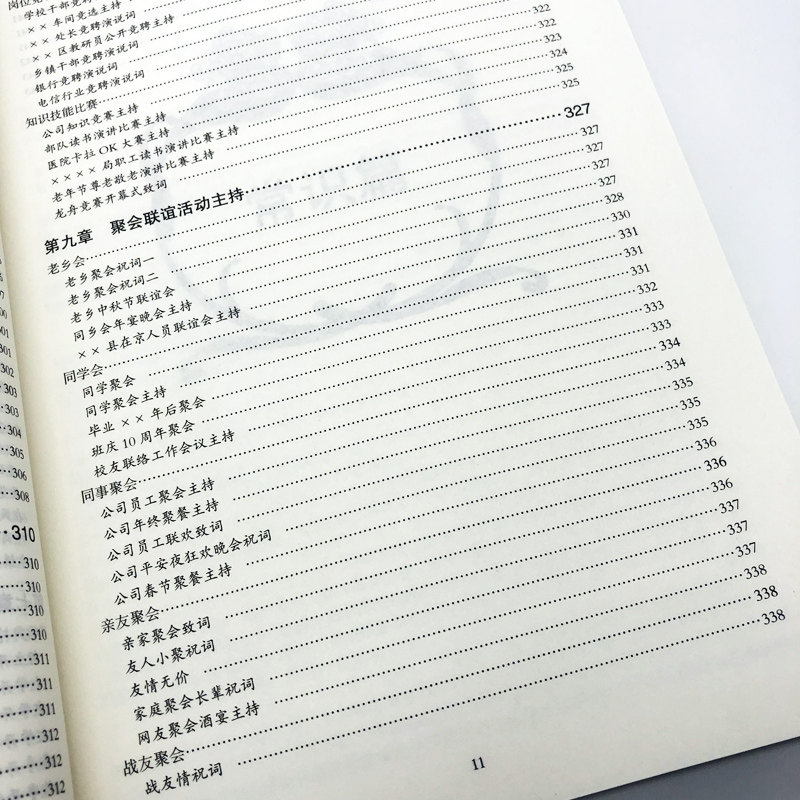 301
303
303
304
305
306
308
310
310
310
310
310
311
311
311
312
312
学校干部竞
×× 车间竞选主持
×× 处长竞聘演说词
×× 区教研员公开竞聘主持
乡镇干部竞聘演说词
银行竞聘演说词
电信行业竞聘演说词
知识技能比赛
公司知识竞赛主持 322
部队读书演讲比赛主持 322
医院卡拉 OK 大赛主持 323
×××× 局职工读书演讲比赛主持 324
老年节尊老敬老演讲比赛主持 325
龙舟竞赛开幕式致词 325
第九章 聚会联谊活动主持 327
老乡会 327
老乡聚会祝词一 327
老乡聚会祝词二 327
老乡中秋节联谊会 327
同乡会年宴晚会主持 328
×× 县在京人员联谊会主持 330
同学会 331
同学聚会 331
同学聚会主持 331
毕业 ×× 年后聚会 332
班庆 10 周年聚会 333
校友联络工作会议主持 333
同事聚会 334
公司员工聚会主持 334
公司年终聚餐主持 335
公司员工联欢致词 335
公司平安夜狂欢晚会祝词 335
公司春节聚餐主持 336
亲友聚会 336
亲家聚会致词 336
友人小聚祝词 337
友情无价 337
家庭聚会长辈祝词 337
网友聚会酒宴主持 338
战友聚会 338
战友情祝词 338
11